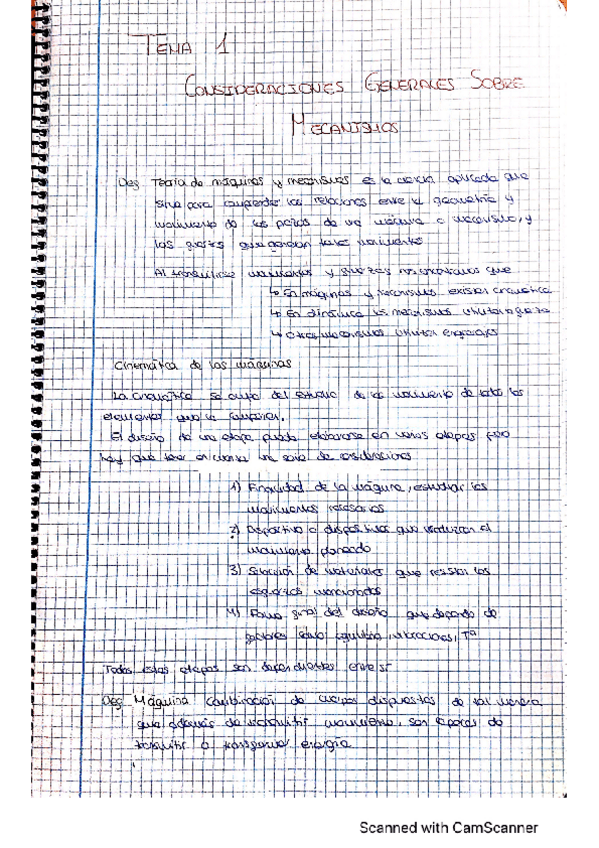 TEMA 1
CONSIDERACIONES GENERALES SOBRE
MECANISMOS
Def Teoría de máquinas y mecanismos es la ciencia aplicada que
sirve para comprender las relaciones entre la geometría y
movimiento de las piezas de una máquina o mecanismo, y
las fuerzas que generan tales movimientos
Al transmitirse movimientos y fuerzas nos encontramos que
↳ En máquinas y mecanismos existen cinemática
↳ En dinámica los mecanismos
↳ Otros mecanismos utilizan engranajes
Cinemática de las máquinas
La cinemática se ocupa del estudio de los movimiento de todos los
elementos que la componen.
El diseño de una etapa puede elaborarse en varias etapas pero
hay que tener en cuenta una serie de consideraciones
1) Finalidad de la máquina, estudiar los
movimientos necesarios
2) Dispositivo o dispositivos que produzcan el
movimiento planeado
3) Selección de materiales que resistan los
esfuerzos mencionados
4) Forma final del diseño que depende de
factores como equilibrio, vibraciones, Tª
Todas estas etapas son dependientes entre sí
Def Máquina combinación de cuerpos dispuestos de tal manera
que además de transmitir movimiento, son capaces de
transmitir o transformar energía
Scanned with CamScanner